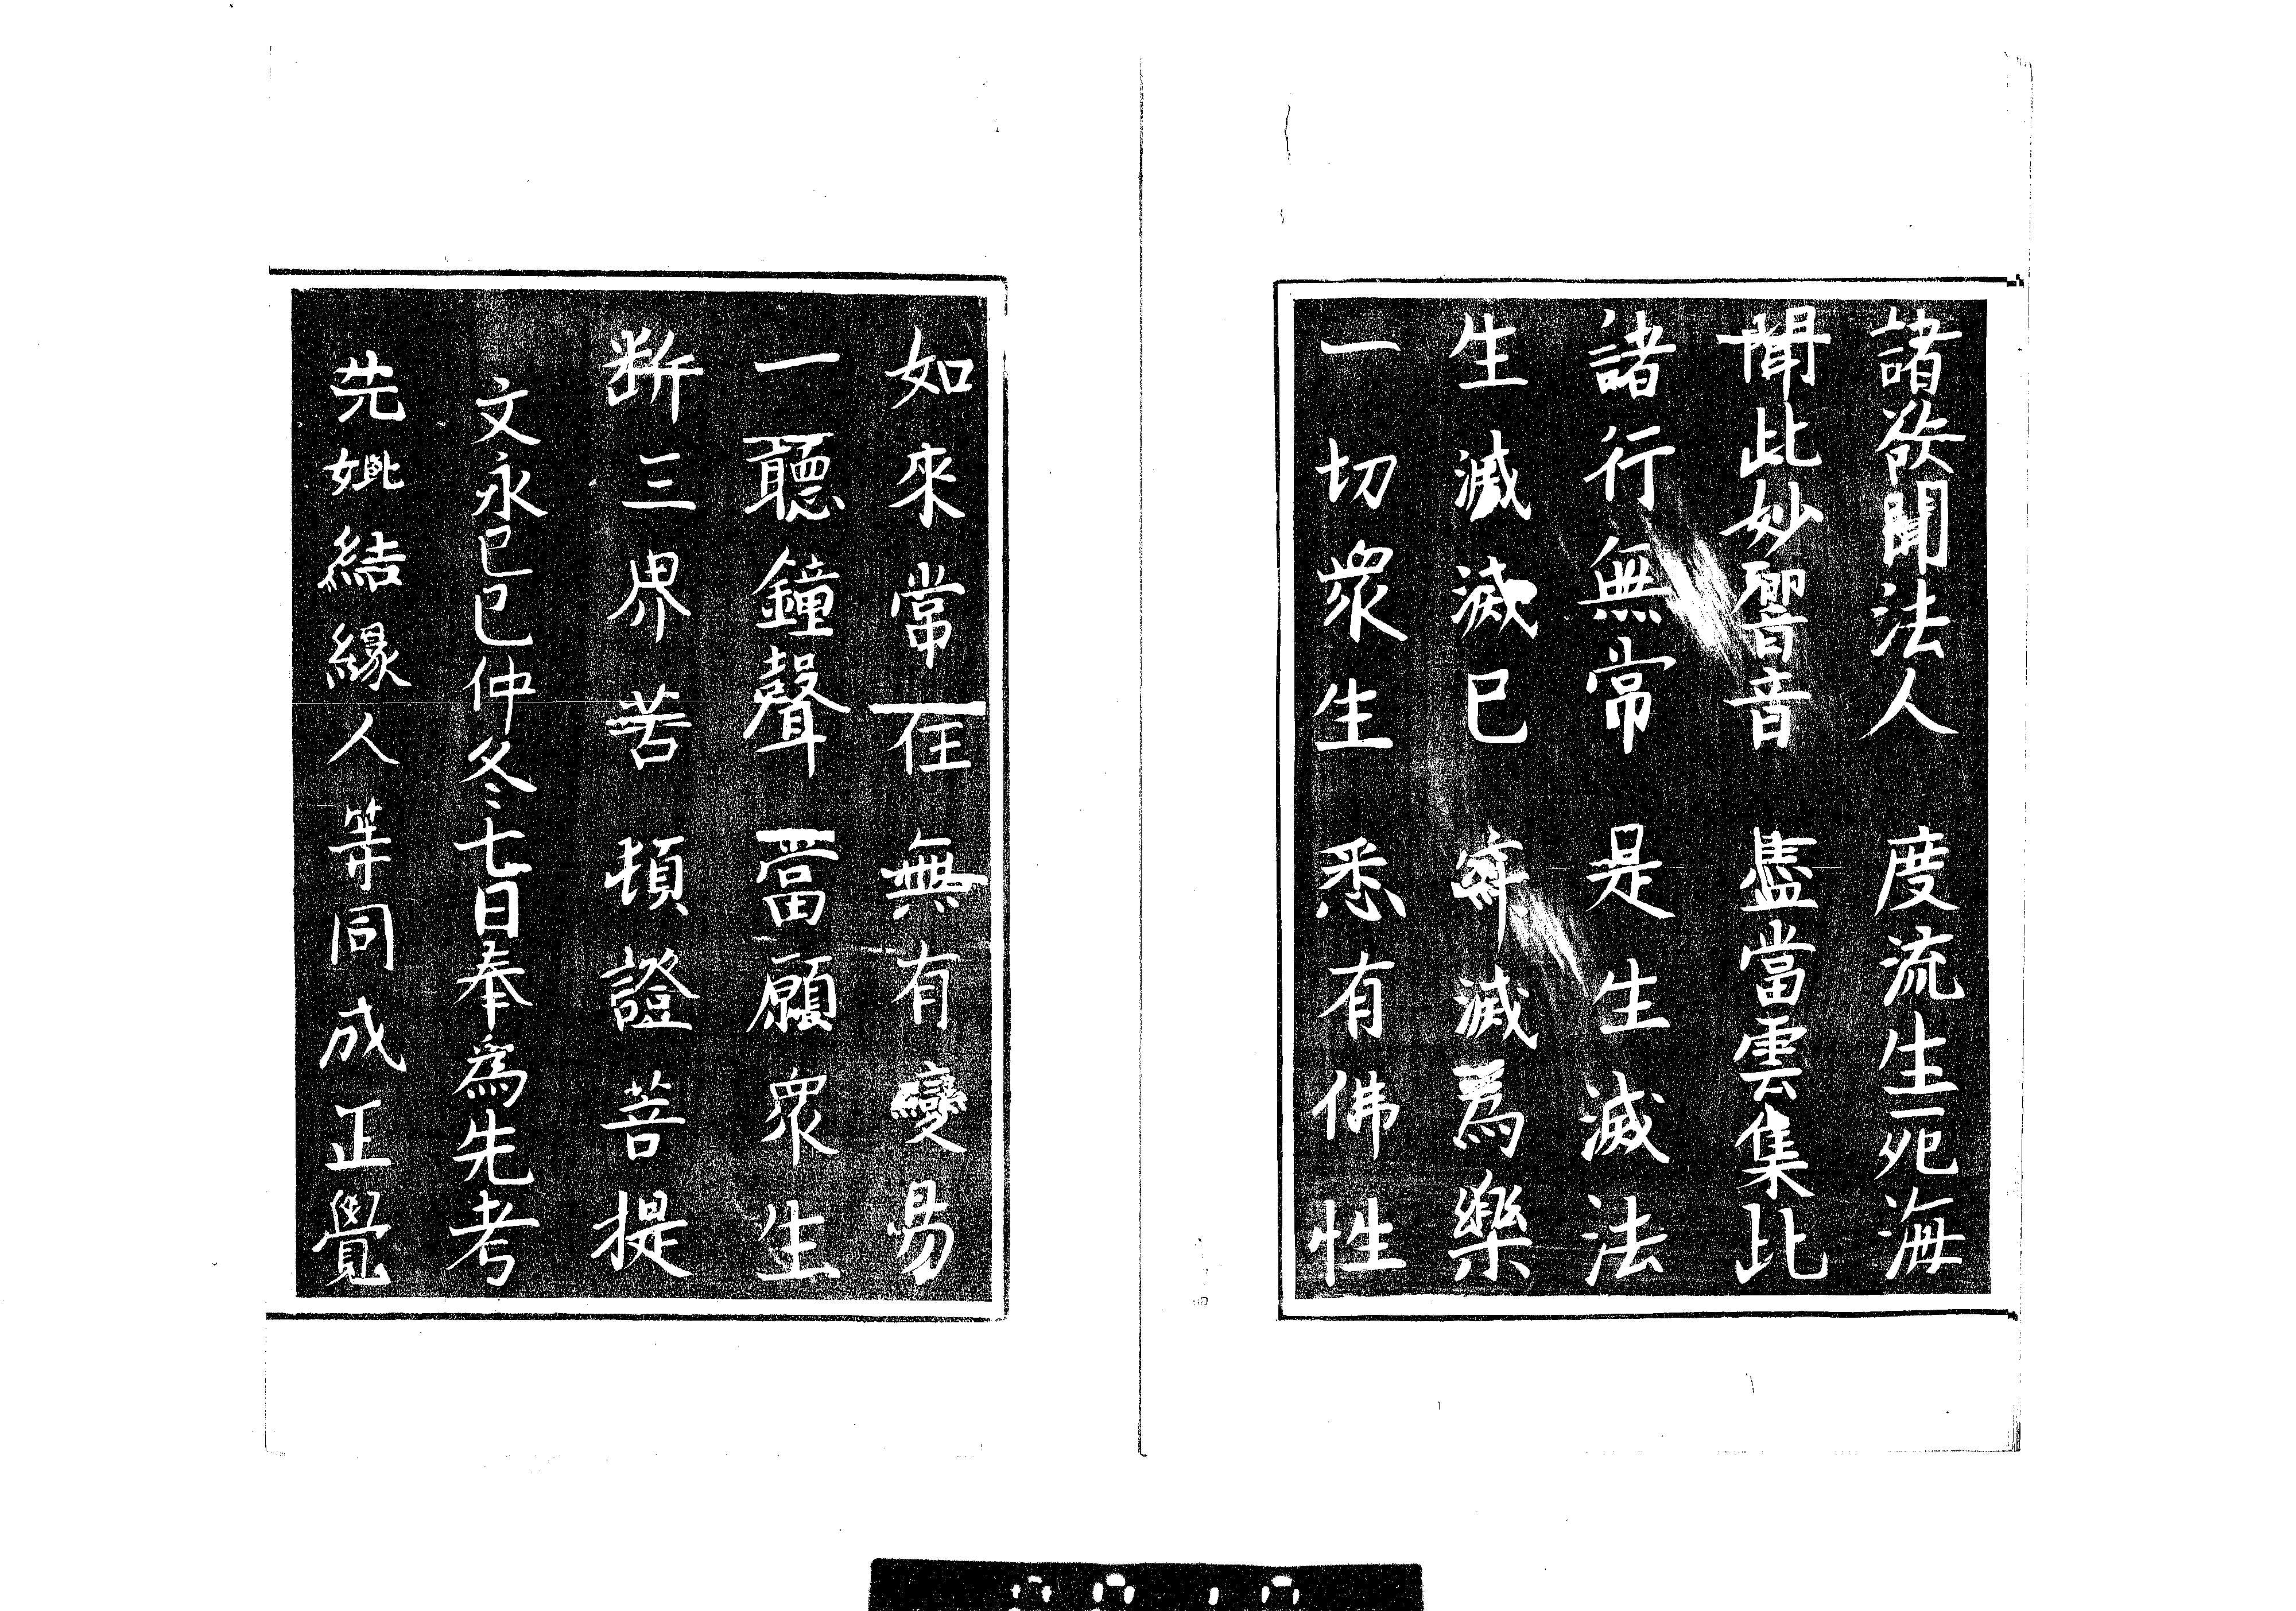 諸欲聞法人　度流生死海
聞此妙響音　盡當雲集此
諸行無常　是生滅法
生滅滅已　寂滅為樂
一切衆生　悉有佛性
如來常住　無有變易
一聽鐘聲　當願衆生
断三界苦　頓證菩提
文永己巳仲冬七日奉為先考
先妣結緣人等同成正覺